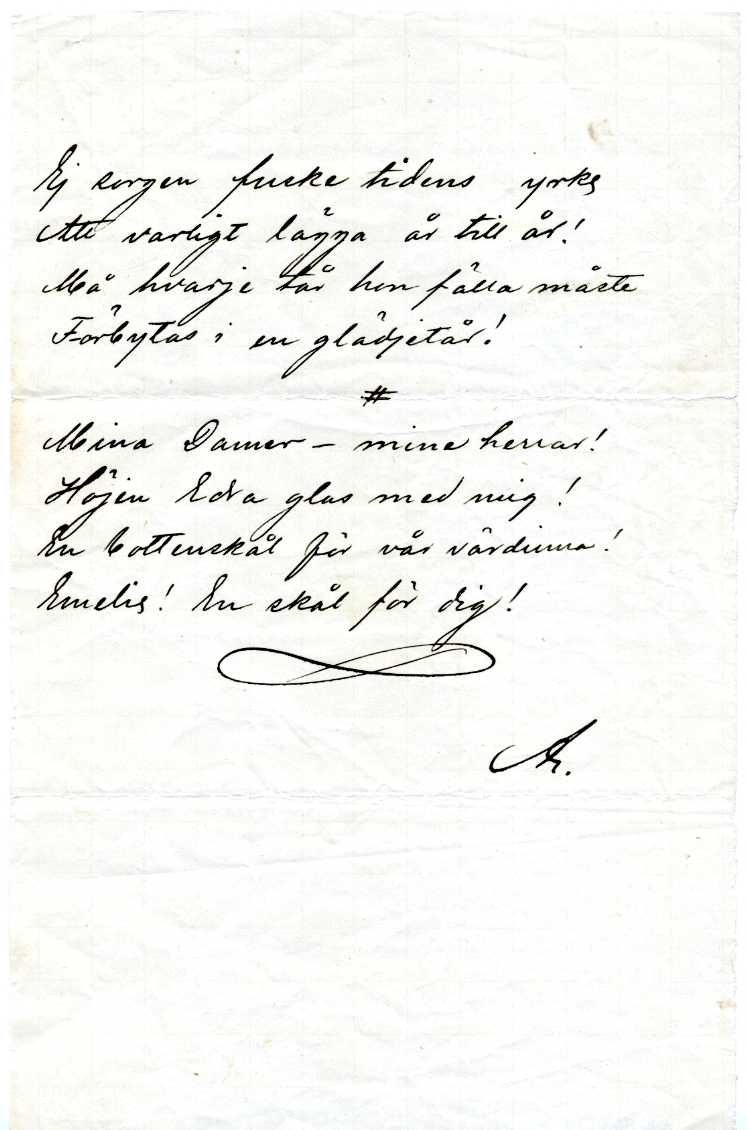 Ej sorgen fuske tidens yrke
Att varligt lägga år till år!
Må hvarje tår hon fälla måste
Förbytas i en glädjetår!
#
Mina Damer – mine herrar!
Höjen Edra glas med mig!
En bottenskål för vår värdinna!
Emelie! En skål för dig!